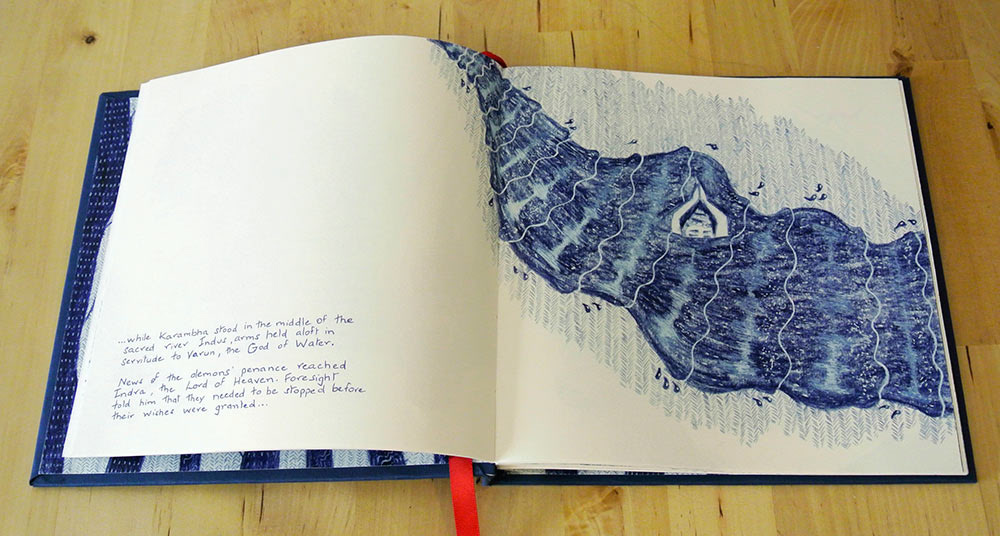 ...while Karambha stood in the middle of the
sacred river Indus, arms held aloft in
servitude to Varun, the God of Water.
News of the demons' penance reached
Indra, the Lord of Heaven. Foresight
told him that they needed to be stopped before
their wishes were granted...